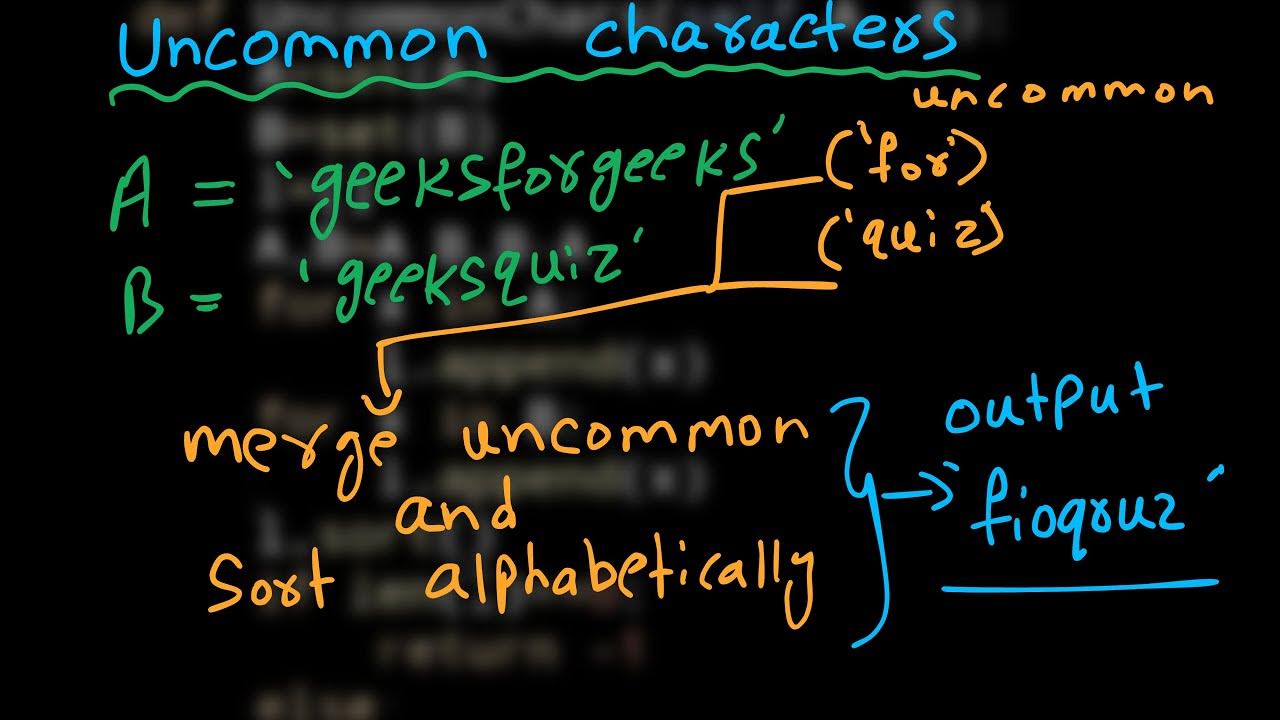 Uncommon characters
uncommon
A = 'geeksforgeeks'
('for')
B = 'geeksquiz'
('quiz)
merge uncommon
and
Sort alphabetically
output
'fioqruz'
append(x)
append(x)
return -1
else